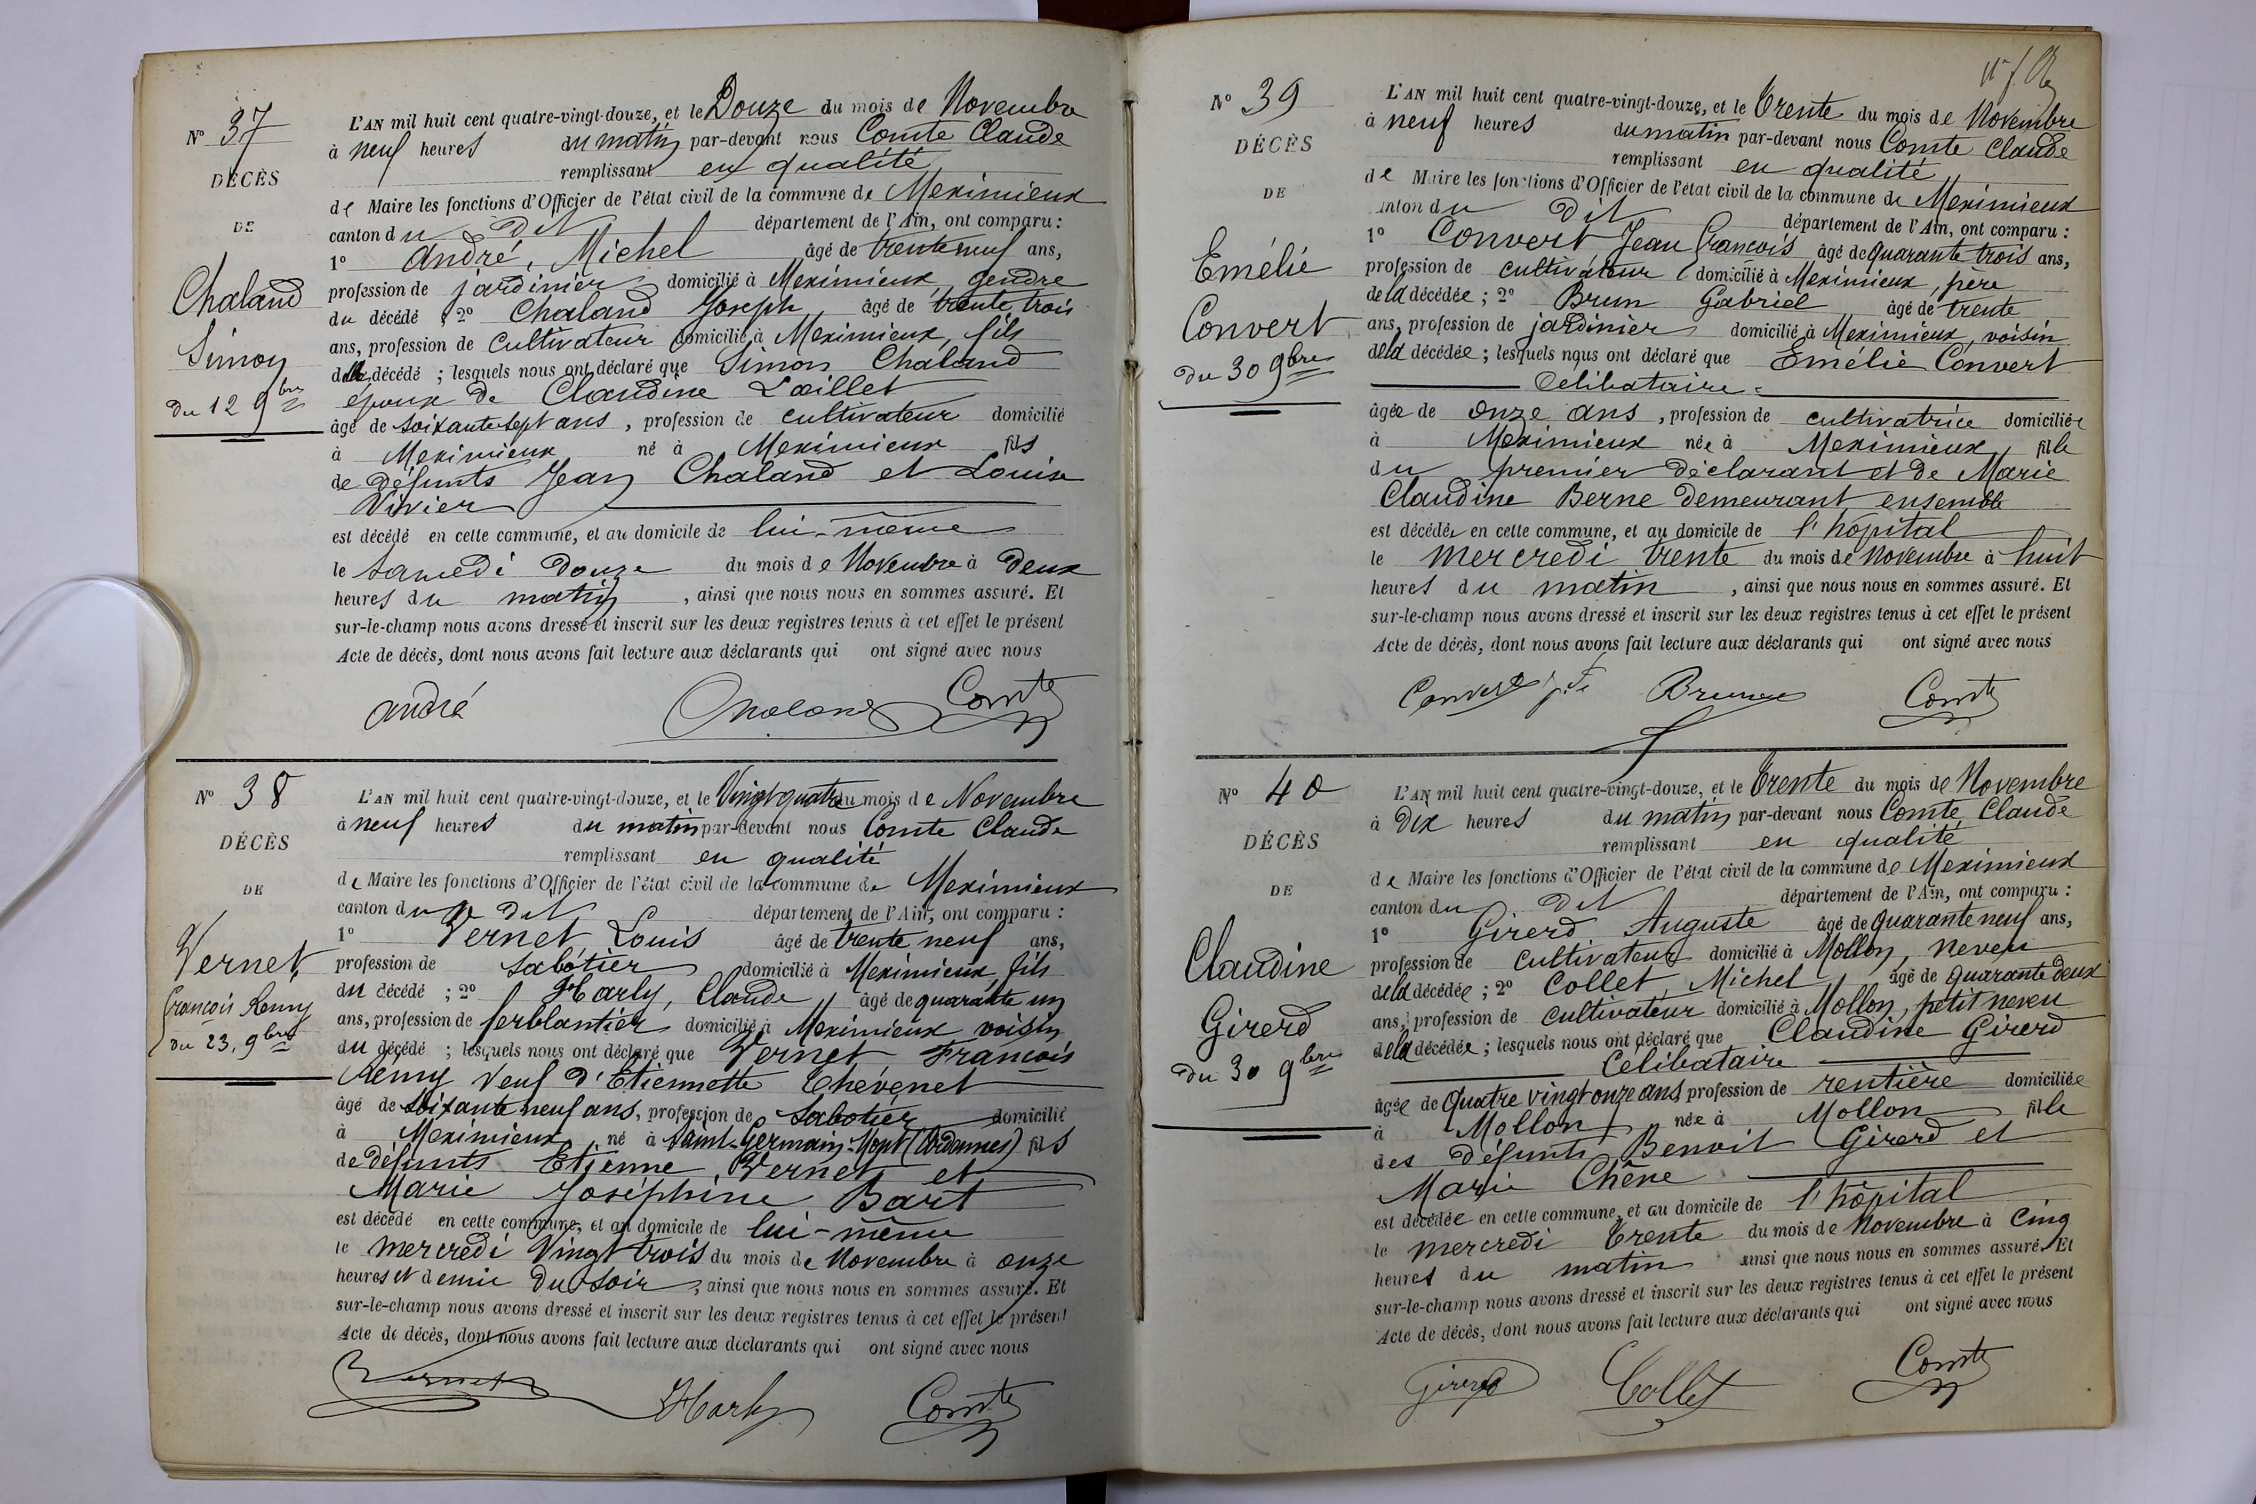 N° 37
DÉCÈS
DE
Chaland
Simon
du 12 9bre
L'AN mil huit cent quatre-vingt-douze, et le Douze du mois de Novembre
à neuf heures du matin par-devant nous Comte Claude
remplissant en qualité
de Maire les fonctions d'Officier de l'état civil de la commune de Meximieux
canton du dit département de l'Ain, ont comparu :
1° André, Michel âgé de trente neuf ans,
profession de jardinier domicilié à Meximieux, gendre
du décédé ; 2° Chaland Joseph âgé de trente trois
ans, profession de cultivateur domicilié à Meximieux, fils
du décédé ; lesquels nous ont déclaré que Simon Chaland
époux de Claudine Loeillet
âgé de soixante sept ans, profession de cultivateur domicilié
à Meximieux né à Meximieux fils
de défunts Jean Chaland et Louise
Vivier
est décédé en cette commune, et au domicile de lui-même
le samedi douze du mois de Novembre à deux
heures du matin, ainsi que nous nous en sommes assuré. Et
sur-le-champ nous avons dressé et inscrit sur les deux registres tenus à cet effet le présent
Acte de décès, dont nous avons fait lecture aux déclarants qui ont signé avec nous
andré Chaland Comte
N° 38
DÉCÈS
DE
Vernet
François Remy
du 23, 9bre
L'AN mil huit cent quatre-vingt-douze, et le Vingt quatre du mois de Novembre
à neuf heures du matin par-devant nous Comte Claude
remplissant en qualité
de Maire les fonctions d'Officier de l'état civil de la commune de Meximieux
canton du dit département de l'Ain, ont comparu :
1° Vernet, Louis âgé de trente neuf ans,
profession de sabotier domicilié à Meximieux, fils
du décédé ; 2° Harly, Claude âgé de quarante un
ans, profession de ferblantier domicilié à Meximieux voisin
du décédé ; lesquels nous ont déclaré que Vernet François
Remy veuf d'Etiennette Thévenet
âgé de soixante neuf ans, profession de sabotier domicilié
à Meximieux né à Saint-Germain-Mont (Ardennes) fils
de défunts Etienne Vernet et
Marie Joséphine Bart
est décédé en cette commune, et au domicile de lui-même
le mercredi Vingt trois du mois de Novembre à onze
heures et demie du soir, ainsi que nous nous en sommes assuré. Et
sur-le-champ nous avons dressé et inscrit sur les deux registres tenus à cet effet le présent
Acte de décès, dont nous avons fait lecture aux déclarants qui ont signé avec nous
Vernet Harly Comte
N° 39
DÉCÈS
DE
Emélie
Convert
du 30 9bre
L'AN mil huit cent quatre-vingt-douze, et le Trente du mois de Novembre
à neuf heures du matin par-devant nous Comte Claude
remplissant en qualité
de Maire les fonctions d'Officier de l'état civil de la commune de Meximieux
canton du dit département de l'Ain, ont comparu :
1° Convert Jean François âgé de quarante trois ans,
profession de cultivateur domicilié à Meximieux, père
de la décédée ; 2° Brun Gabriel âgé de trente
ans, profession de jardinier domicilié à Meximieux, voisin
de la décédée ; lesquels nous ont déclaré que Emélie Convert
Célibataire
âgée de onze ans, profession de cultivatrice domiciliée
à Meximieux née à Meximieux, fille
du premier déclarant et de Marie
Claudine Berne demeurant ensemble
est décédée en cette commune, et au domicile de l'hôpital
le mercredi trente du mois de Novembre à huit
heures du matin, ainsi que nous nous en sommes assuré. Et
sur-le-champ nous avons dressé et inscrit sur les deux registres tenus à cet effet le présent
Acte de décès, dont nous avons fait lecture aux déclarants qui ont signé avec nous
Convert Brun Comte
N° 40
DÉCÈS
DE
Claudine
Girerd
du 30 9bre
L'AN mil huit cent quatre-vingt-douze, et le Trente du mois de Novembre
à dix heures du matin par-devant nous Comte Claude
remplissant en qualité
de Maire les fonctions d'Officier de l'état civil de la commune de Meximieux
canton du dit département de l'Ain, ont comparu :
1° Girerd Auguste âgé de quarante neuf ans,
profession de cultivateur domicilié à Mollon, neveu
de la décédée ; 2° Collet, Michel âgé de quarante deux
ans, profession de cultivateur domicilié à Mollon, petit neveu
de la décédée ; lesquels nous ont déclaré que Claudine Girerd
Célibataire
âgée de quatre vingt onze ans profession de rentière domiciliée
à Mollon née à Mollon fille
des défunts Benoit Girerd et
Marie Chêne
est décédée en cette commune, et au domicile de l'hôpital
le mercredi Trente du mois de Novembre à cinq
heures du matin ainsi que nous nous en sommes assuré. Et
sur-le-champ nous avons dressé et inscrit sur les deux registres tenus à cet effet le présent
Acte de décès, dont nous avons fait lecture aux déclarants qui ont signé avec nous
Girerd Collet Comte